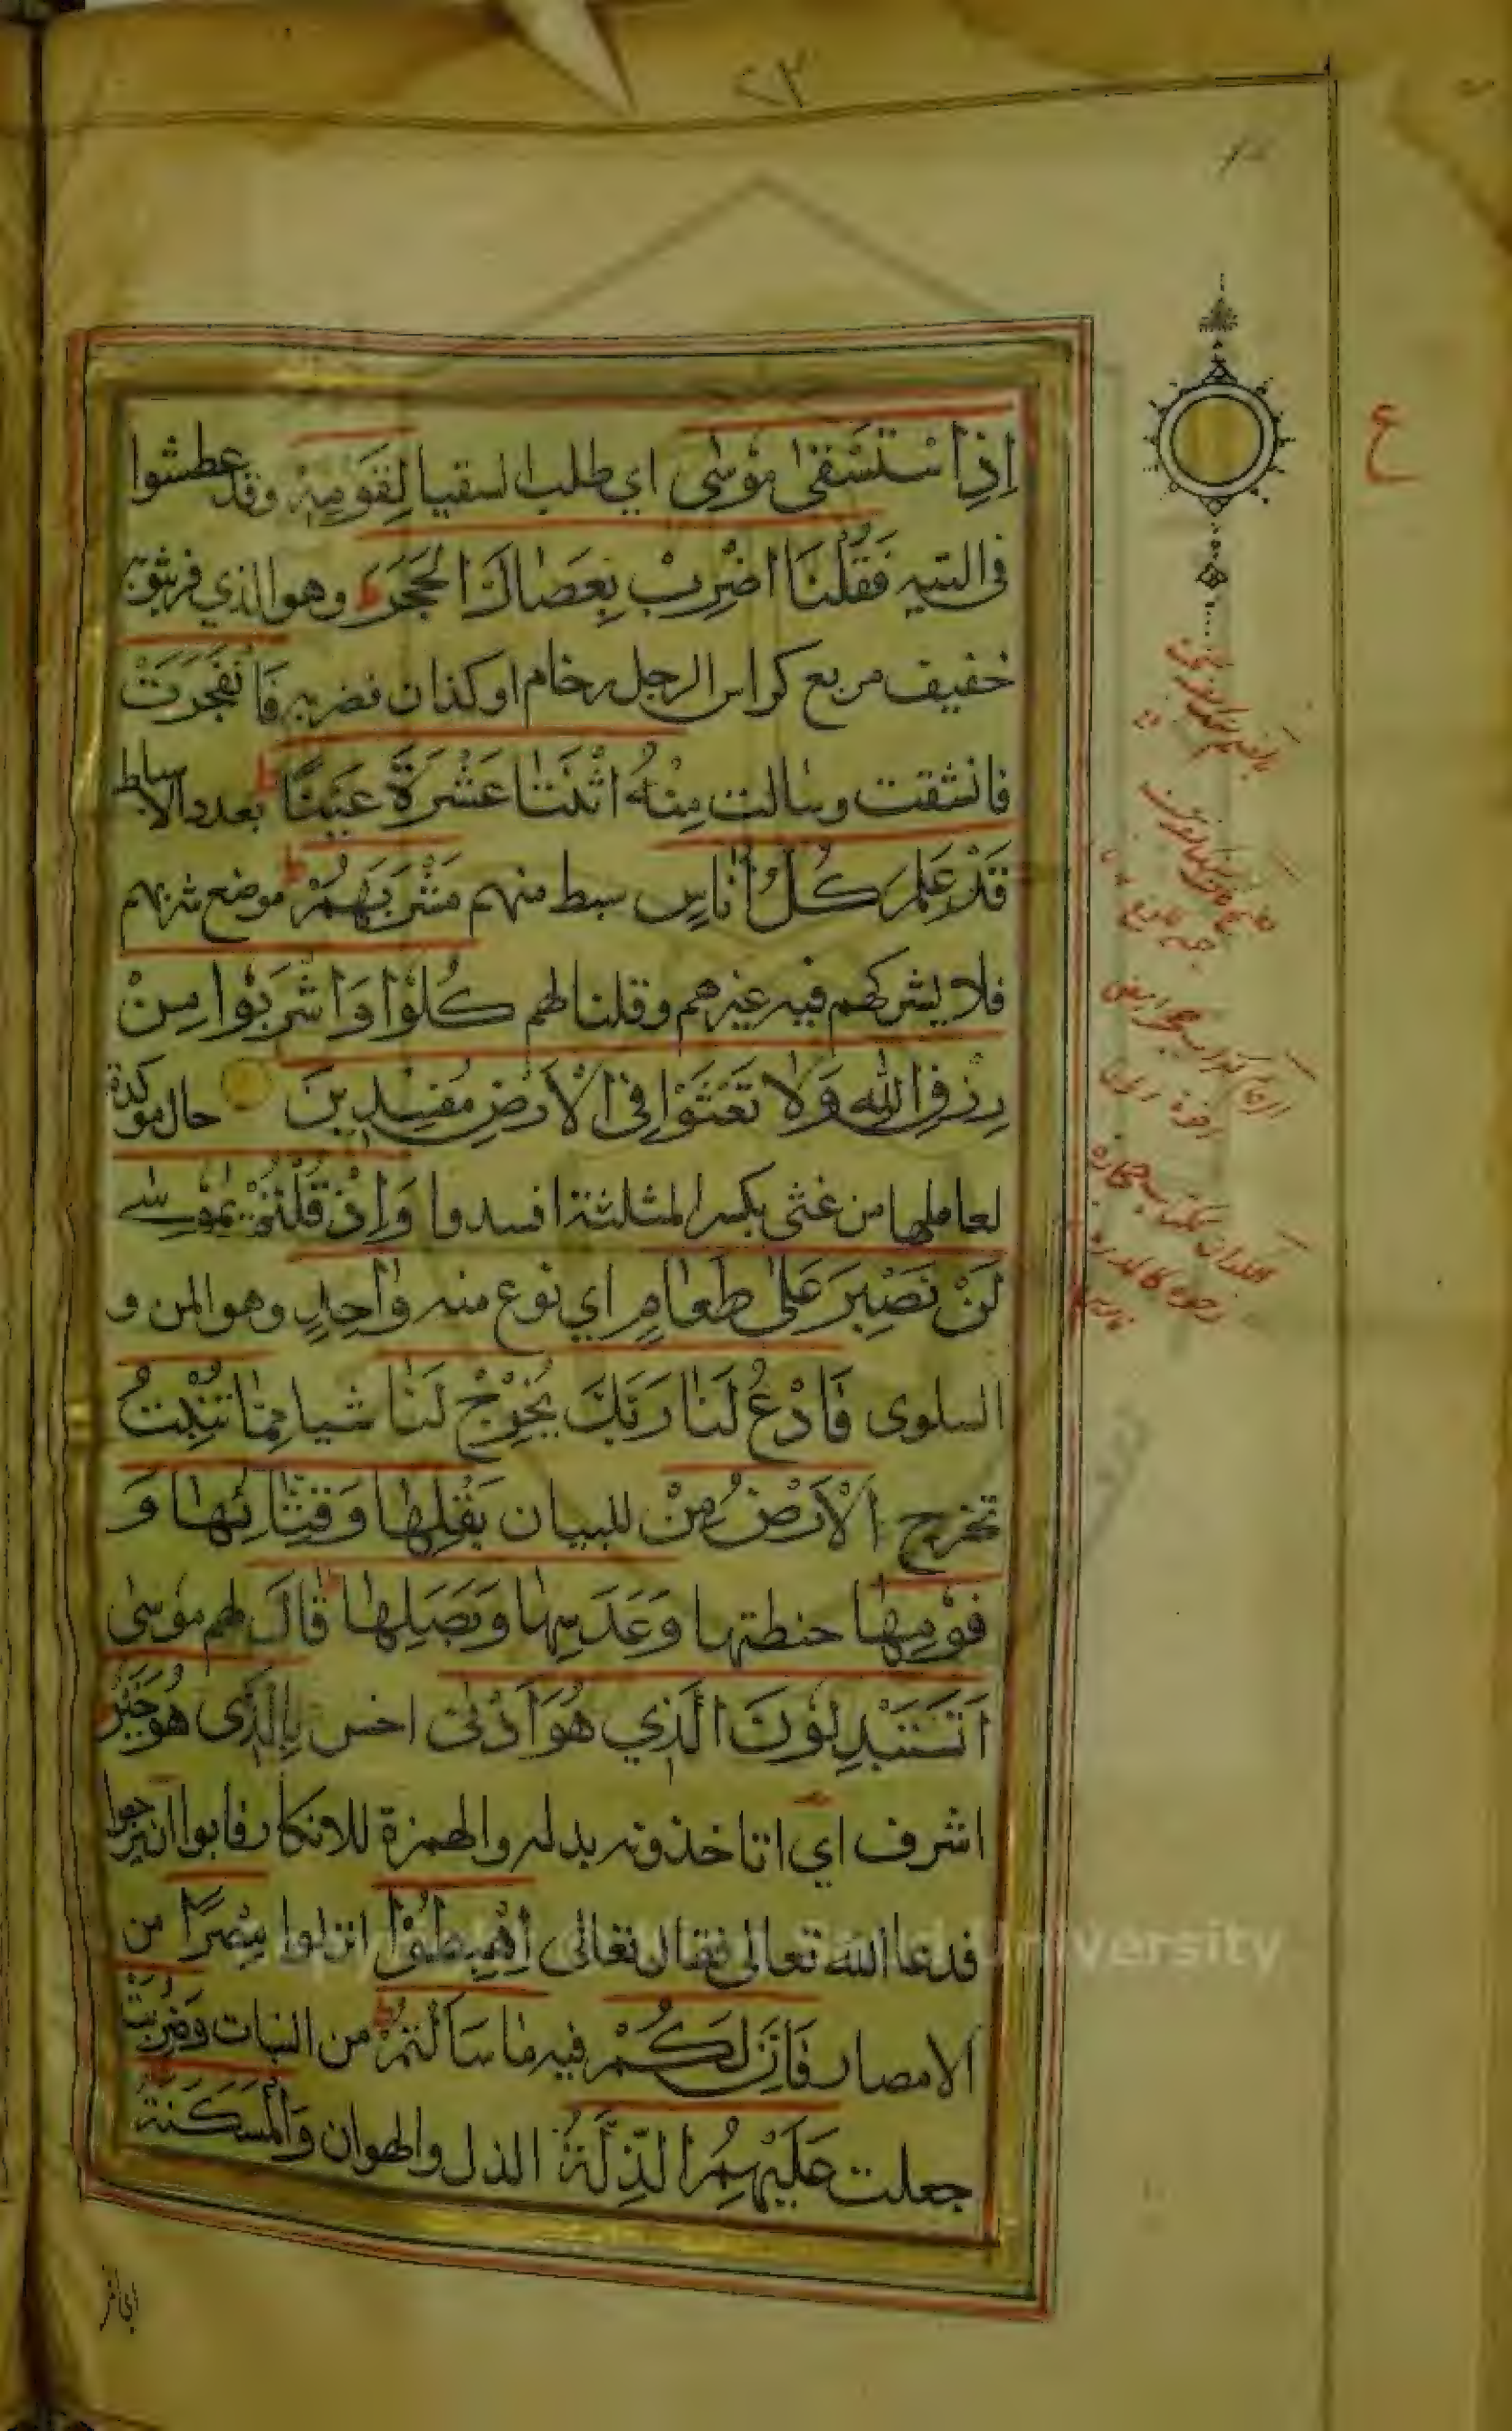 ٢٣
ع
اِذِ اسْتَسْقٰى مُوْسٰى اي طلب السقيا لِقَوْمِهٖ وقد عطشوا
فى التيه فَقُلْنَا اضْرِبْ بِعَصَاكَ الْحَجَرَ ط وهو الذي فر بثوبه
خفيف مربع كراس الرجل رخام او كذان فضربه فَانْفَجَرَتْ
فانشقت وسالت مِنْهُ اثْنَتَا عَشْرَةَ عَيْنًا ط بعدد الاسباط
قَدْ عَلِمَ كُلُّ اُنَاسٍ سبط منهم مَشْرَبَهُمْ ط موضع شربهم
فلا يشركهم فيه غيرهم وقلنا لهم كُلُوْا وَاشْرَبُوْا مِنْ
رِزْقِ اللّٰهِ وَلَا تَعْثَوْا فِى الْاَرْضِ مُفْسِدِيْنَ حال موكدة
لعاملها من عثى بكسر المثلثة افسدوا وَاِذْ قُلْتُمْ يٰمُوْسٰى
لَنْ نَصْبِرَ عَلٰى طَعَامٍ اي نوع منه وَاحِدٍ وهو المن و
السلوى فَادْعُ لَنَا رَبَّكَ يُخْرِجْ لَنَا شيا مِمَّا تُنْبِتُ
تخرج الْاَرْضُ مِنْ للبيان بَقْلِهَا وَقِثَّائِهَا وَ
فُوْمِهَا حنطتها وَعَدَسِهَا وَبَصَلِهَا ط قَالَ لهم موسى
اَتَسْتَبْدِلُوْنَ الَّذِي هُوَ اَدْنٰى اخس بِالَّذِى هُوَ خَيْرٌ
اشرف اي اتاخذونه بدله والهمزة للانكار فابوا ان يرجعوا
فدعا الله تعالى فقال تعالى اِهْبِطُوْا انزلوا مِصْرًا من
الامصار فَاِنَّ لَكُمْ فيه مَا سَاَلْتُمْ ط من النبات وَضُرِبَتْ
جعلت عَلَيْهِمُ الذِّلَّةُ الذل والهوان وَالْمَسْكَنَةُ
versity